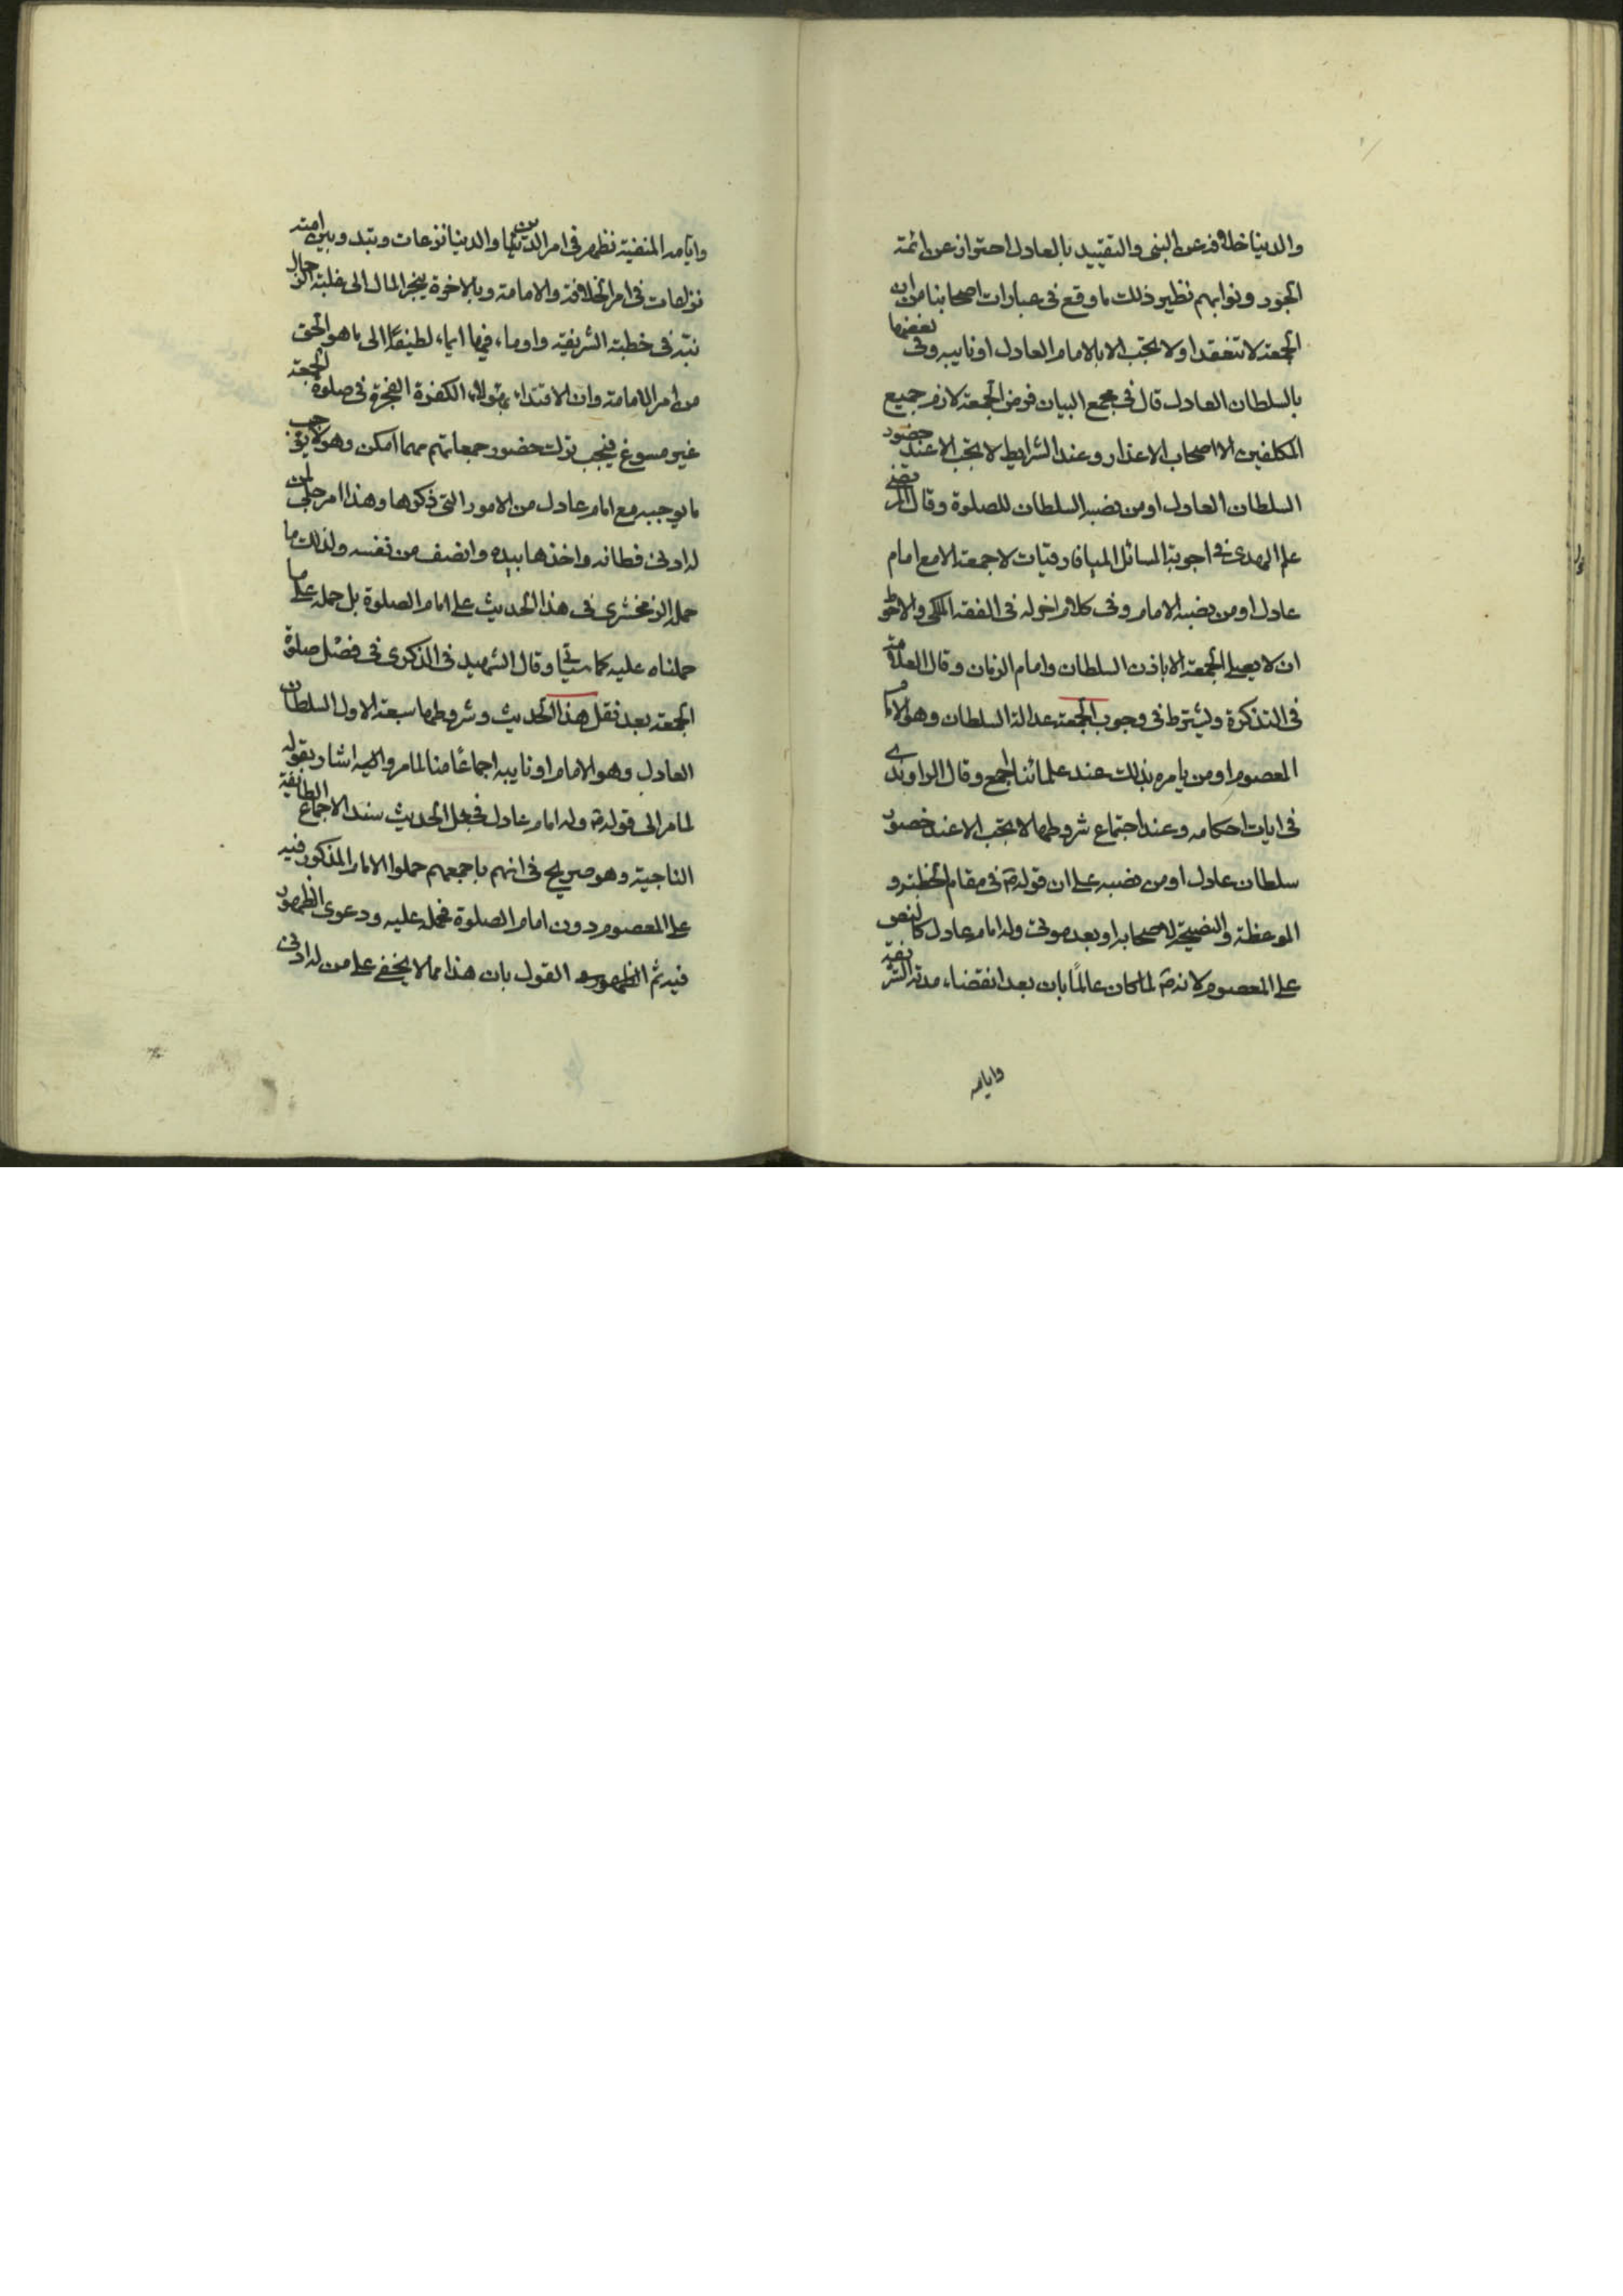 والدنيا خلافة عن النبي والتقييد بالعادل احتراز عن ائمة
الجور ونوابهم نظير ذلك ما وقع في عبارات اصحابنا من ان
الجمعة لا تنعقد او لا تجب الا بالامام العادل او نايبه وفي بعضها
بالسلطان العادل قال في مجمع البيان فرض الجمعة لازم جميع
المكلفين الا اصحاب الاعذار وعند الشرايط لا تجب الا عند حضور
السلطان العادل او من نصبه السلطان للصلوة وقال المرتضى
علم الهدى في اجوبة المسائل الميافارقيات لا جمعة الا مع امام
عادل او من نصبه الامام وفي كلام اخر له في الفقه الملكي والاحوط
ان لا يصلي الجمعة الا باذن السلطان وامام الزمان وقال العلامة
في التذكرة ويشترط في وجوب الجمعة عدالة السلطان وهو الامام
المعصوم او من يامره بذلك عند علمائنا اجمع وقال الراوندي
في ايات احكامه وعند اجتماع شروطها لا تجب الا عند حضور
سلطان عادل او من نصبه على ان قوله ص في مقام الخطبة و
الموعظة والنصيحة لاصحابه او بعد موتي وله امام عادل كالنص
على المعصوم لانه ص لما كان عالمًا بان بعد انقضاء مدته الشريفة
وايامه
وايامه المنفية تظهر في امر الدين والدنيا نزعات وتبدو بين امته
نزاعات في امر الخلافة والامامة وبالاخرة ينجر المال الى غلبة الرجال
نبه في خطبته الشريفة واوماء فيها ايماء لطيفًا الى ما هو الحق
من امر الامامة وان الاقتداء بهؤلاء الكفرة الفجرة في صلوة الجمعة
غير مسوغ فيجب ترك حضور جمعاتهم مهما امكن وهو لا يوجب
ما يوجبه مع امام عادل من الامور التي ذكرها وهذا امر جلي لمن
له ادنى فطانة واخذها بيده وانصف من نفسه ولذلك ما
حمل الزمخشري في هذا الحديث على امام الصلوة بل حمله على ما
حملناه عليه كما سيأتي وقال الشهيد في الذكرى في فضل صلوة
الجمعة بعد نقل هذا الحديث وشروطها سبعة الاول السلطان
العادل وهو الامام او نايبه اجماعًا منا لما مر واليه اشار بقوله
لما مر الى قوله ص وله امام عادل فجعل الحديث سند الاجماع الطائفة
الناجية وهو صريح في انهم باجمعهم حملوا الامام المذكور فيه
على المعصوم دون امام الصلوة فحمله عليه ودعوى الظهور
فيه ثم القول بان هذا مما لا يخفى على من له ادنى